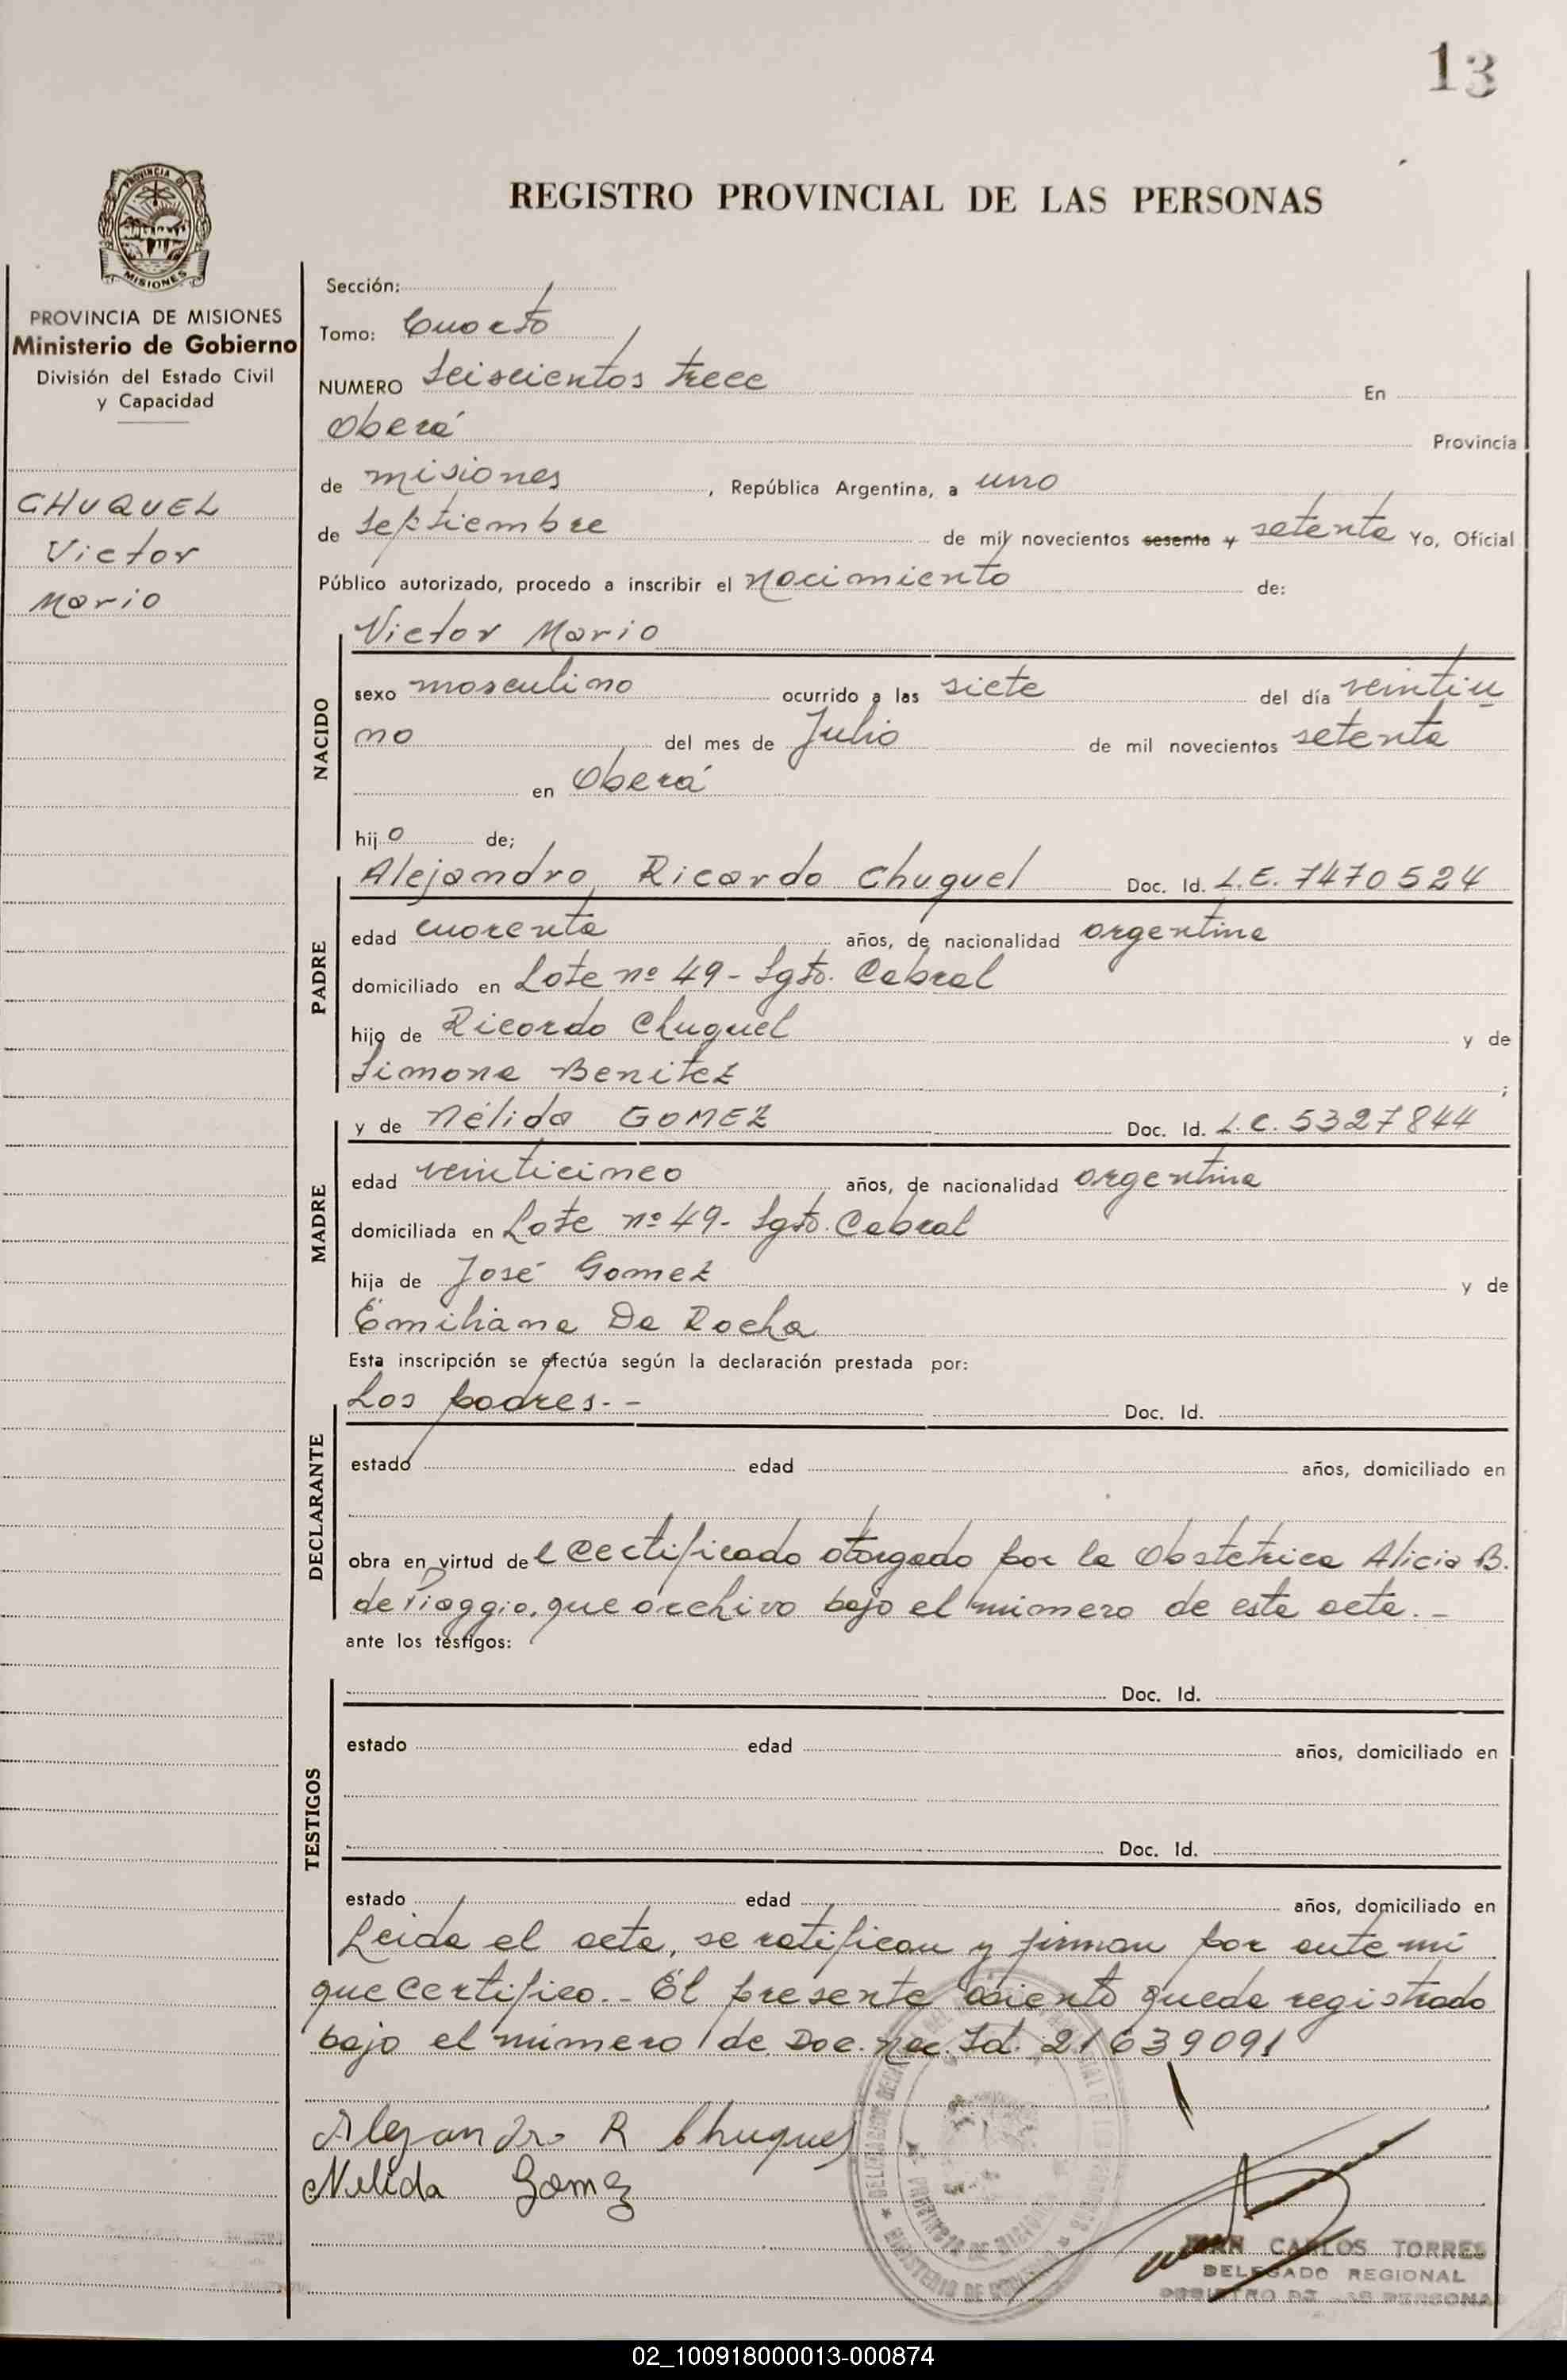 13
PROVINCIA DE
MISIONES
REGISTRO PROVINCIAL DE LAS PERSONAS
PROVINCIA DE MISIONES
Ministerio de Gobierno
División del Estado Civil
y Capacidad
CHUQUEL
Victor
Mario
Sección:
Tomo: Cuarto
NUMERO Seiscientos trece En
Oberá Provincia
de misiones, República Argentina, a uno
de septiembre de mil novecientos sesenta y setenta Yo, Oficial
Público autorizado, procedo a inscribir el nacimiento de:
NACIDO
Victor Mario
sexo masculino ocurrido a las siete del día veintiu
no del mes de Julio de mil novecientos setenta
en Oberá
hijo de;
PADRE
Alejandro Ricardo Chuquel Doc. Id. L.E. 7470524
edad cuarenta años, de nacionalidad argentina
domiciliado en Lote nº 49 - Sgto. Cabral
hijo de Ricardo Chuquel y de
Simona Benitez ;
MADRE
y de Nélida GOMEZ Doc. Id. L.C. 5327844
edad veinticinco años, de nacionalidad argentina
domiciliada en Lote nº 49 - Sgto. Cabral
hija de José Gomez y de
Emiliana Da Rocha
Esta inscripción se efectúa según la declaración prestada por:
DECLARANTE
Los padres. - Doc. Id.
estado edad años, domiciliado en
obra en virtud del certificado otorgado por la Obstetrica Alicia B.
de Piaggio, que archivo bajo el número de esta acta. -
ante los testigos:
TESTIGOS
Doc. Id.
estado edad años, domiciliado en
Doc. Id.
estado edad años, domiciliado en
Leida el acta, se ratifican y firman por ante mi
que certifico. - El presente asiento queda registrado
bajo el número de Doc. Nac. Id. 21639091
Alejandro R Chuquel
Nelida Gomez
PROVINCIA DE MISIONES
MINISTERIO DE GOBIERNO
JUAN CARLOS TORRES
DELEGADO REGIONAL
REGISTRO DE LAS PERSONAS
02_100918000013-000874